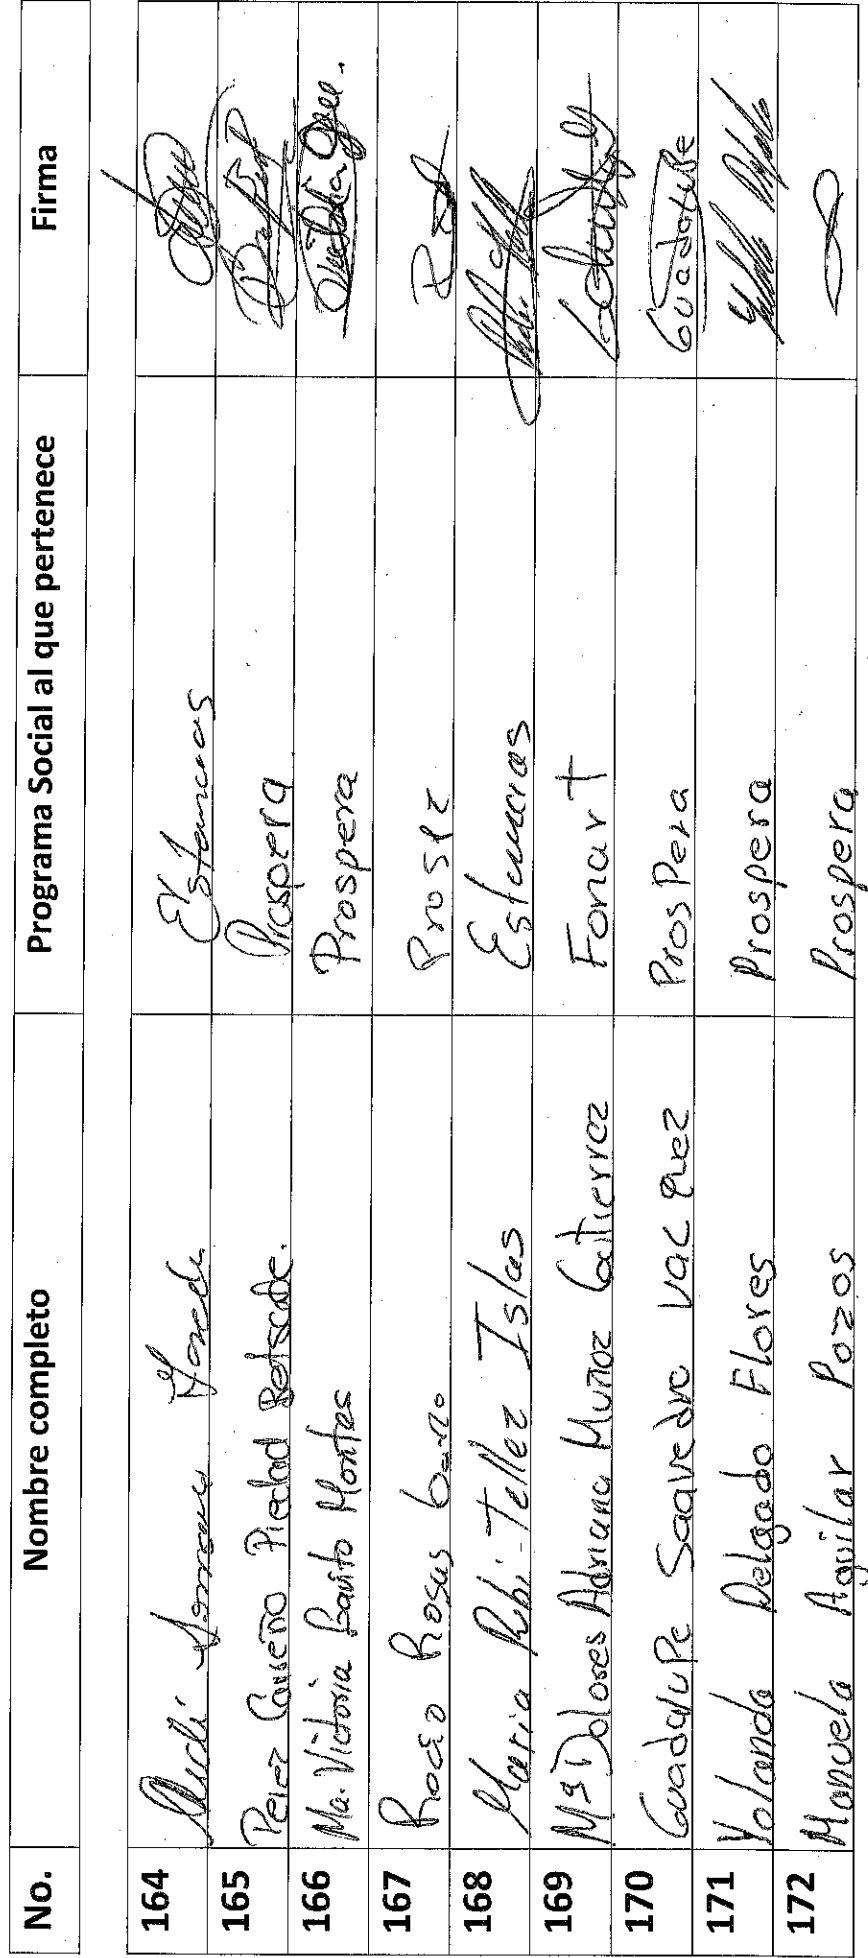 No. Nombre completo Programa Social al que pertenece Firma
164 Estancias
165 Perez Carreño Piedad Prospera
166 Ma. Victoria Montes Prospera
167 Rocio Rosas
168 Maria Rubi Tellez Islas Estancias
169 Mª Dolores Adriana Muñoz Gutierrez Fonart
170 Guadalupe Saavedra Vazquez ProsPera Guadalupe
171 Yolanda Delgado Flores Prospera
172 Manuela Aguilar Pozos Prospera